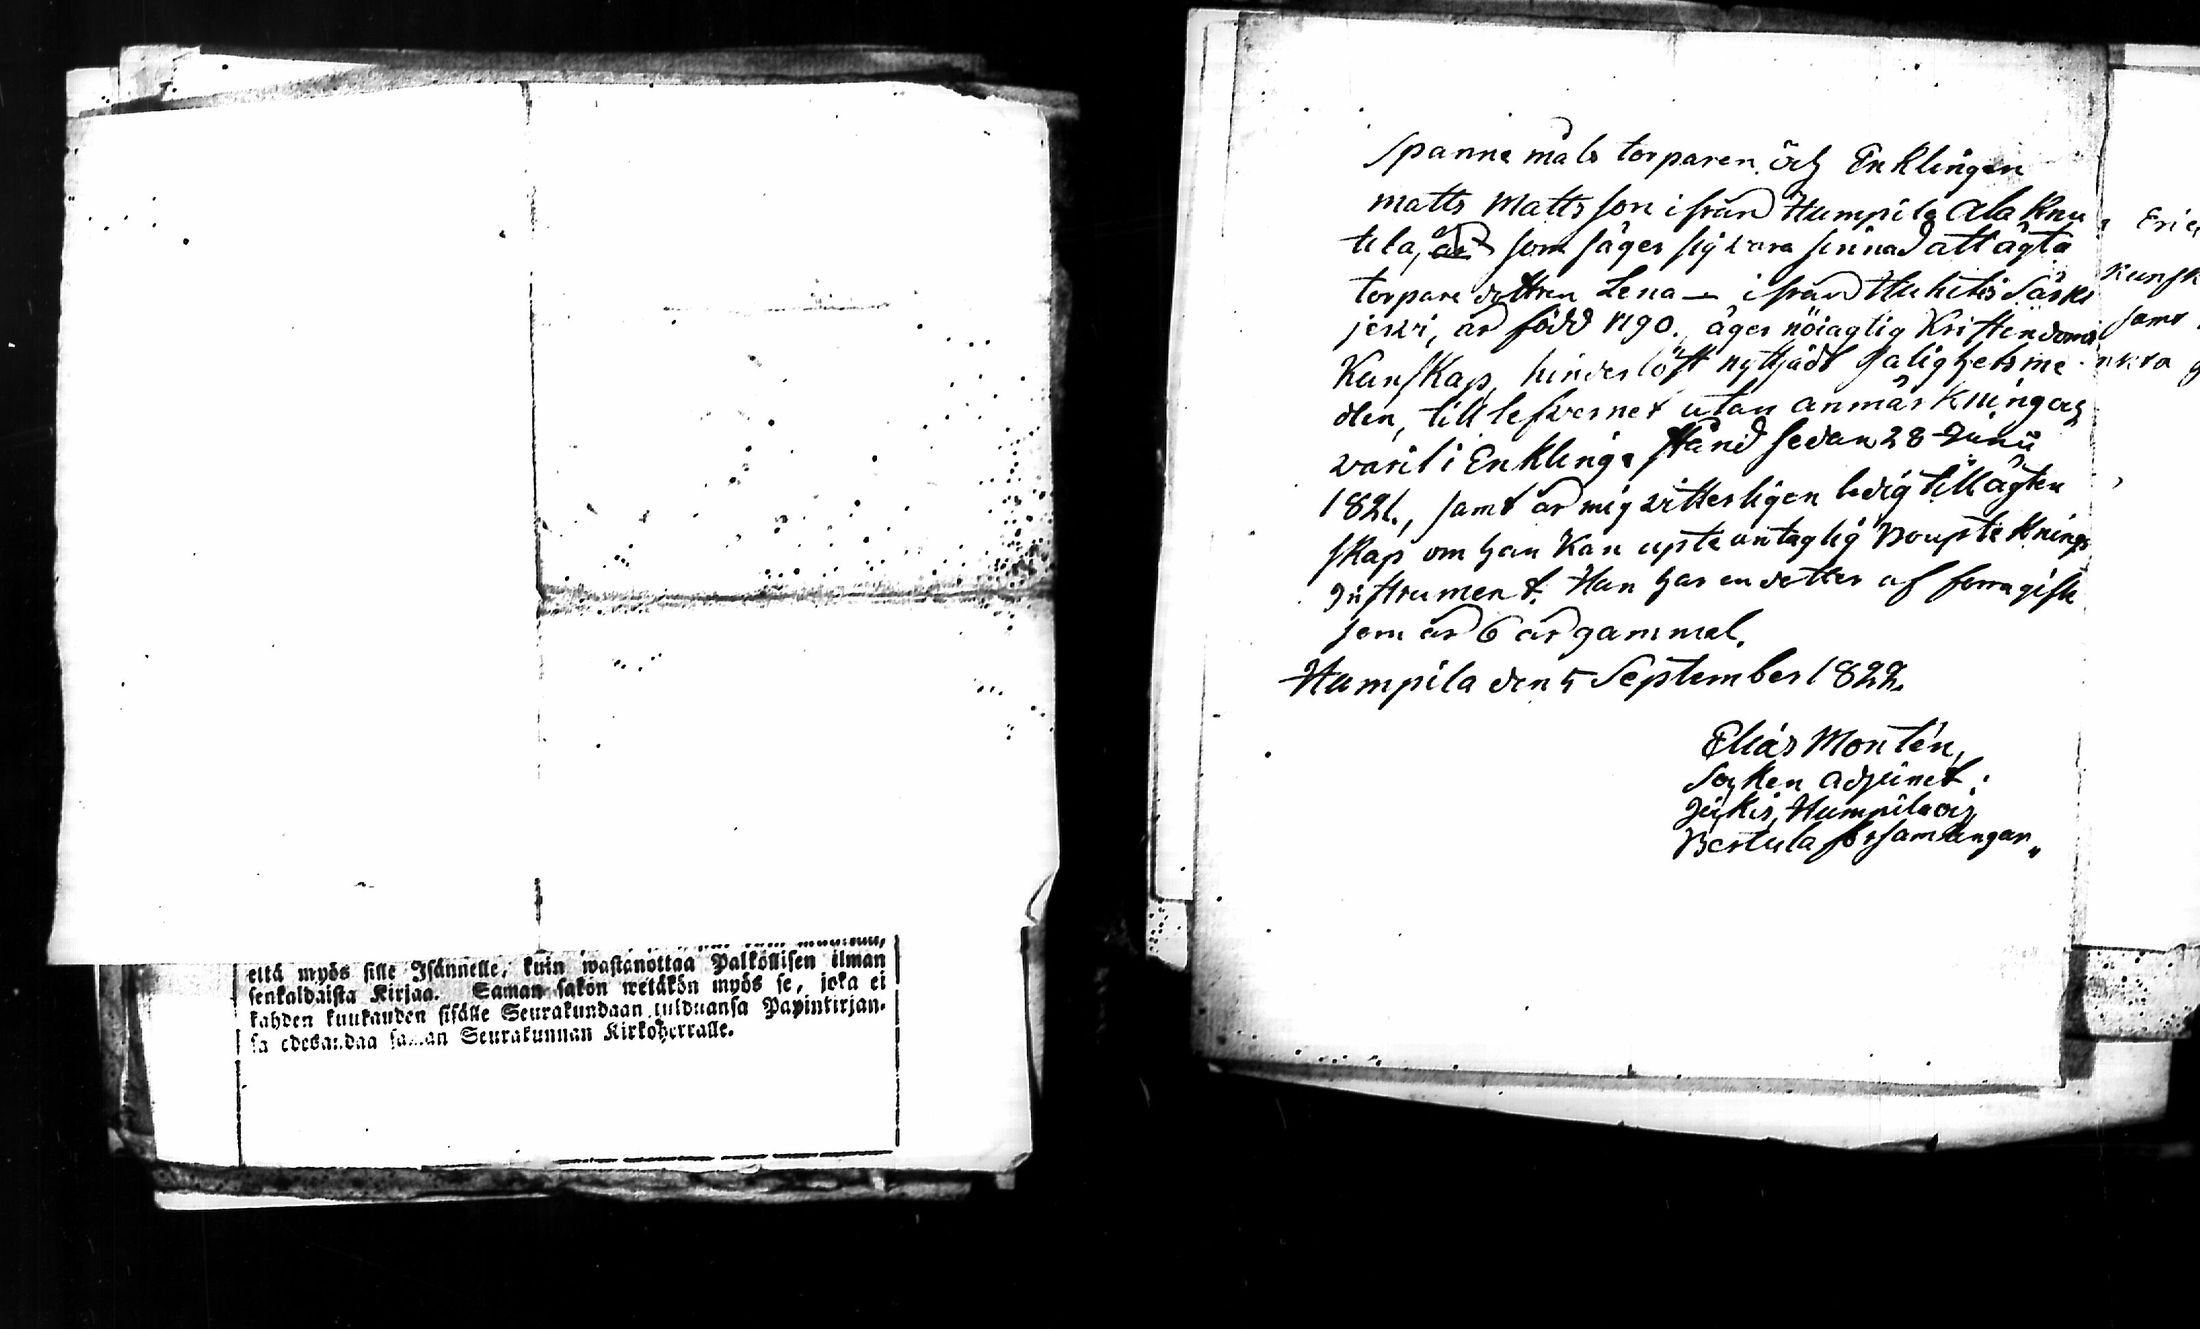 että myös sille Isännelle, kuin wastanottaa Palkollisen ilman
senkaldaista Kirjaa. Saman sakon wetäkön myös se, joka ei
kahden kuukauden sisälle Seurakundaan tulduansa Papinkirjan-
sa edesandaa saman Seurakunnan Kirkoherralle.
Spannemåls torparen och Enklingen
Matts Mattsson ifrån Humpila Ala Knu
tila, som säges sig vara sinnad att ägta
torpare dottren Lena — ifrån Huhtis Särki
jervi, är född 1790. äger nöiagtig Kristendoms
Kunskap, hinderlöst nyttjadt salighets me
dlen, till lefvernet utan anmärkning och
varit i Enklings stånd sedan 28 Junii
1821., samt är mig vitterligen ledig till ägten
skap om han Kan upte untaglig Boupteknings
Instrument. Han har en dotter af förra gifte
som är 6 år gammal.
Humpila den 5 September 1822.
Elias Montén,
Soken adjunct i
Jokis, Humpila och
Vertula församlingar
Eric
Kunsk
samt